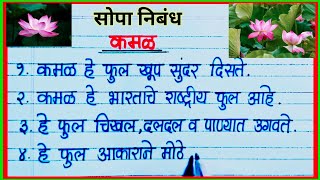 सोपा निबंध
कमळ
१. कमळ हे फुल खूप सुंदर दिसते.
२. कमळ हे भारताचे राष्ट्रीय फुल आहे.
३. हे फुल चिखल,दलदल व पाण्यात उगवते.
४. हे फुल आकाराने मोठे